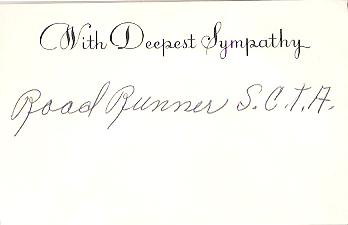 With Deepest Sympathy
Road Runner S.C.T.A.